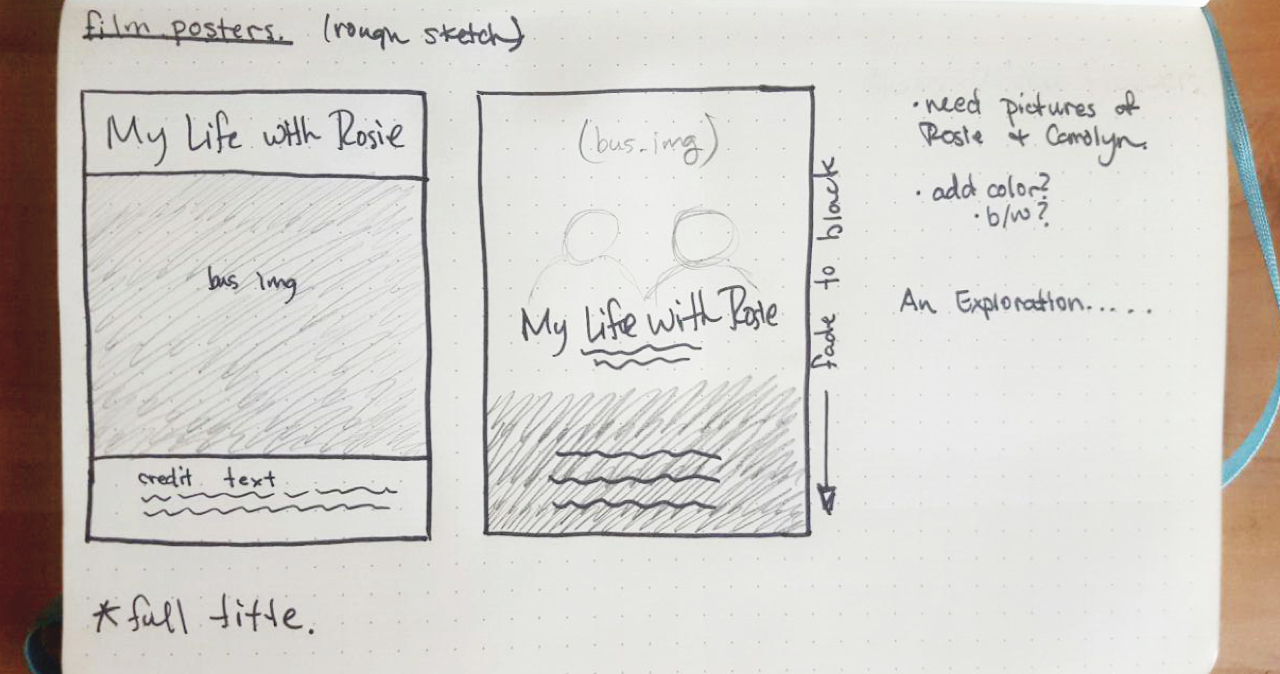 film posters. (rough sketch)
My Life with Rosie
bus img
credit text
*full title.
(bus-img)
My Life with Rosie
fade to black
•need pictures of
Rosie + Carolyn.
• add color?
• b/w?
An Exploration.....